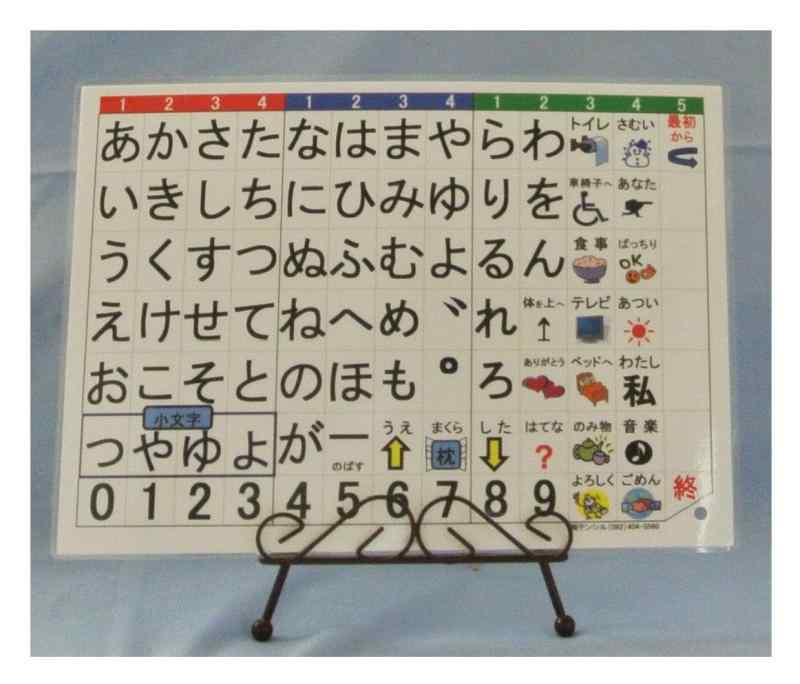 1 2 3 4 1 2 3 4 1 2 3 4 5
あ か さ た な は ま や ら わ トイレ さむい 最初から
い き し ち に ひ み ゆ り を 車椅子へ あなた
う く す つ ぬ ふ む よ る ん 食事 ばっちり OK
え け せ て ね へ め ゛ れ 体を上へ テレビ あつい
お こ そ と の ほ も ゜ ろ ありがとう ベッドへ わたし 私
小文字
つ や ゆ よ が ー のばす うえ まくら 枕 した はてな ? のみ物 音楽
0 1 2 3 4 5 6 7 8 9 よろしく ごめん 終